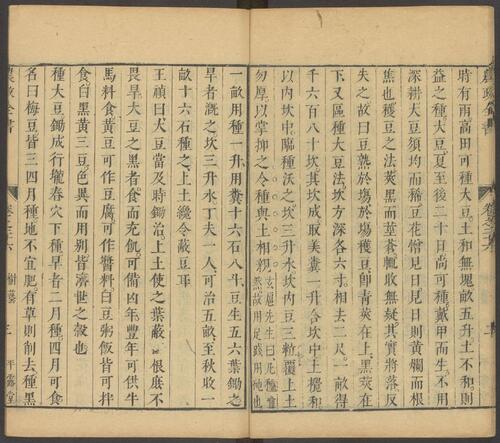 時有雨高田可種大豆土和無塊畝五升土不和則
益之種大豆夏至後二十日尚可種戴甲而生不用
深耕大豆須均而稀豆花憎見日見日則黃爛而根
焦也穫豆之法莢黑而莖蒼輒收無疑其實將落反
失之故曰豆熟於場於場穫豆即青莢在上黑莢在
下又區種大豆法坎方深各六寸相去二尺一畝得
千六百八十坎其坎成取美糞一升合坎中土攪和
以內坎中臨種沃之坎三升水坎內豆三粒覆上土
勿厚以掌抑之令種與土相親
玄扈先生曰凡種豆
然故用足踐用杝也
一畝用種一升用糞十六石八斗豆生五六葉鋤之
旱者溉之坎三升水丁夫一人可治五畝至秋收一
畝十六石種之上土纔令蔽豆耳
王禎曰大豆當及時鋤治上土使之葉蔽其根庶不
畏旱大豆之黑者食而充飢可備凶年豐年可供牛
馬料食黃豆可作豆腐可作醬料白豆粥飯皆可拌
食白黑黃三豆色異而用別皆濟世之穀也
種大豆鋤成行壠春穴下種早者二月種四月可食
名曰梅豆皆三四月種地不宜肥有草則削去種黑
農政全書
卷之二六
樹藝
三
平露堂